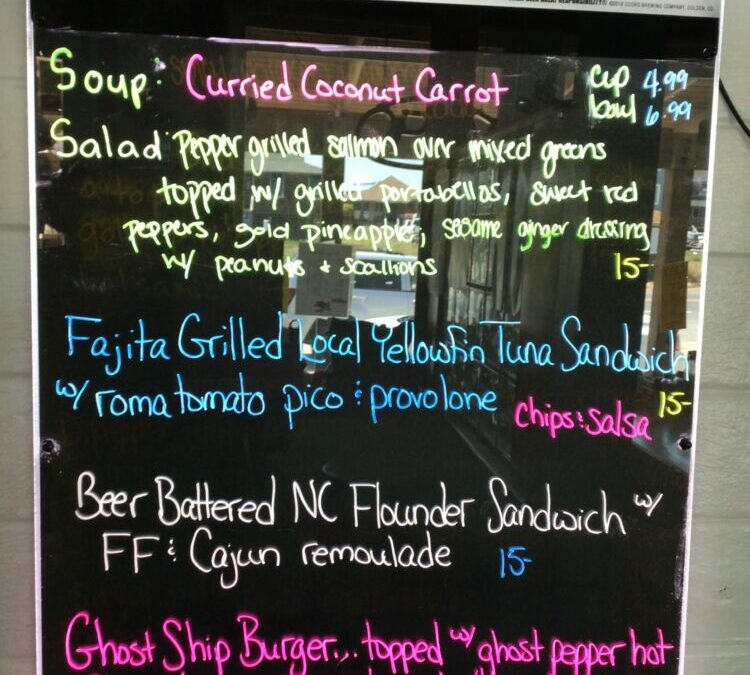 ©2010 COORS BREWING COMPANY, GOLDEN, CO
Soup: Curried Coconut Carrot cup 4.99
bowl 6.99
Salad Pepper grilled salmon over mixed greens
topped w/ grilled portabellas, sweet red
peppers, gold pineapple, sesame ginger dressing
w/ peanuts + scallions 15-
Fajita Grilled Local Yellowfin Tuna Sandwich
w/ roma tomato pico & provolone 15-
chips & salsa
Beer Battered NC Flounder Sandwich w/
FF & Cajun remoulade 15-
Ghost Ship Burger... topped w/ ghost pepper hot